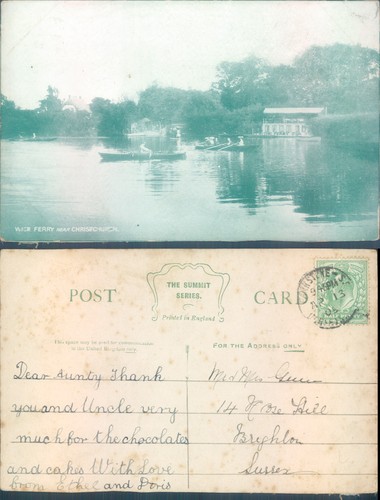 WICK FERRY NEAR CHRISTCHURCH.
POST CARD
THE SUMMIT
SERIES.
Printed in England
This space may be used for correspondence
FOR THE ADDRESS ONLY
Dear Aunty Thank
you and Uncle very
much for the chocolates
and cakes With Love
from Ethel and Doris
Mr & Mrs
14 Rose Hill
Brighton
Sussex